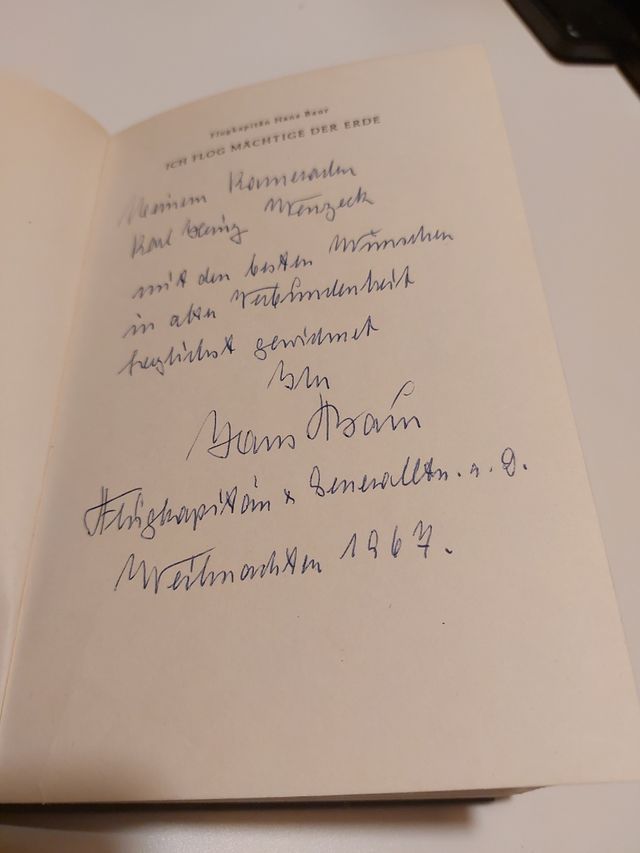 Flugkapitän Hans Baur
ICH FLOG MÄCHTIGE DER ERDE
Meinem Kameraden
Karl Heinz Wenzeck
mit den besten Wünschen
in alter Verbundenheit
herzlichst gewidmet
Ihr
Hans Baur
Flugkapitän & Generalltn. a. D.
Weihnachten 1967.